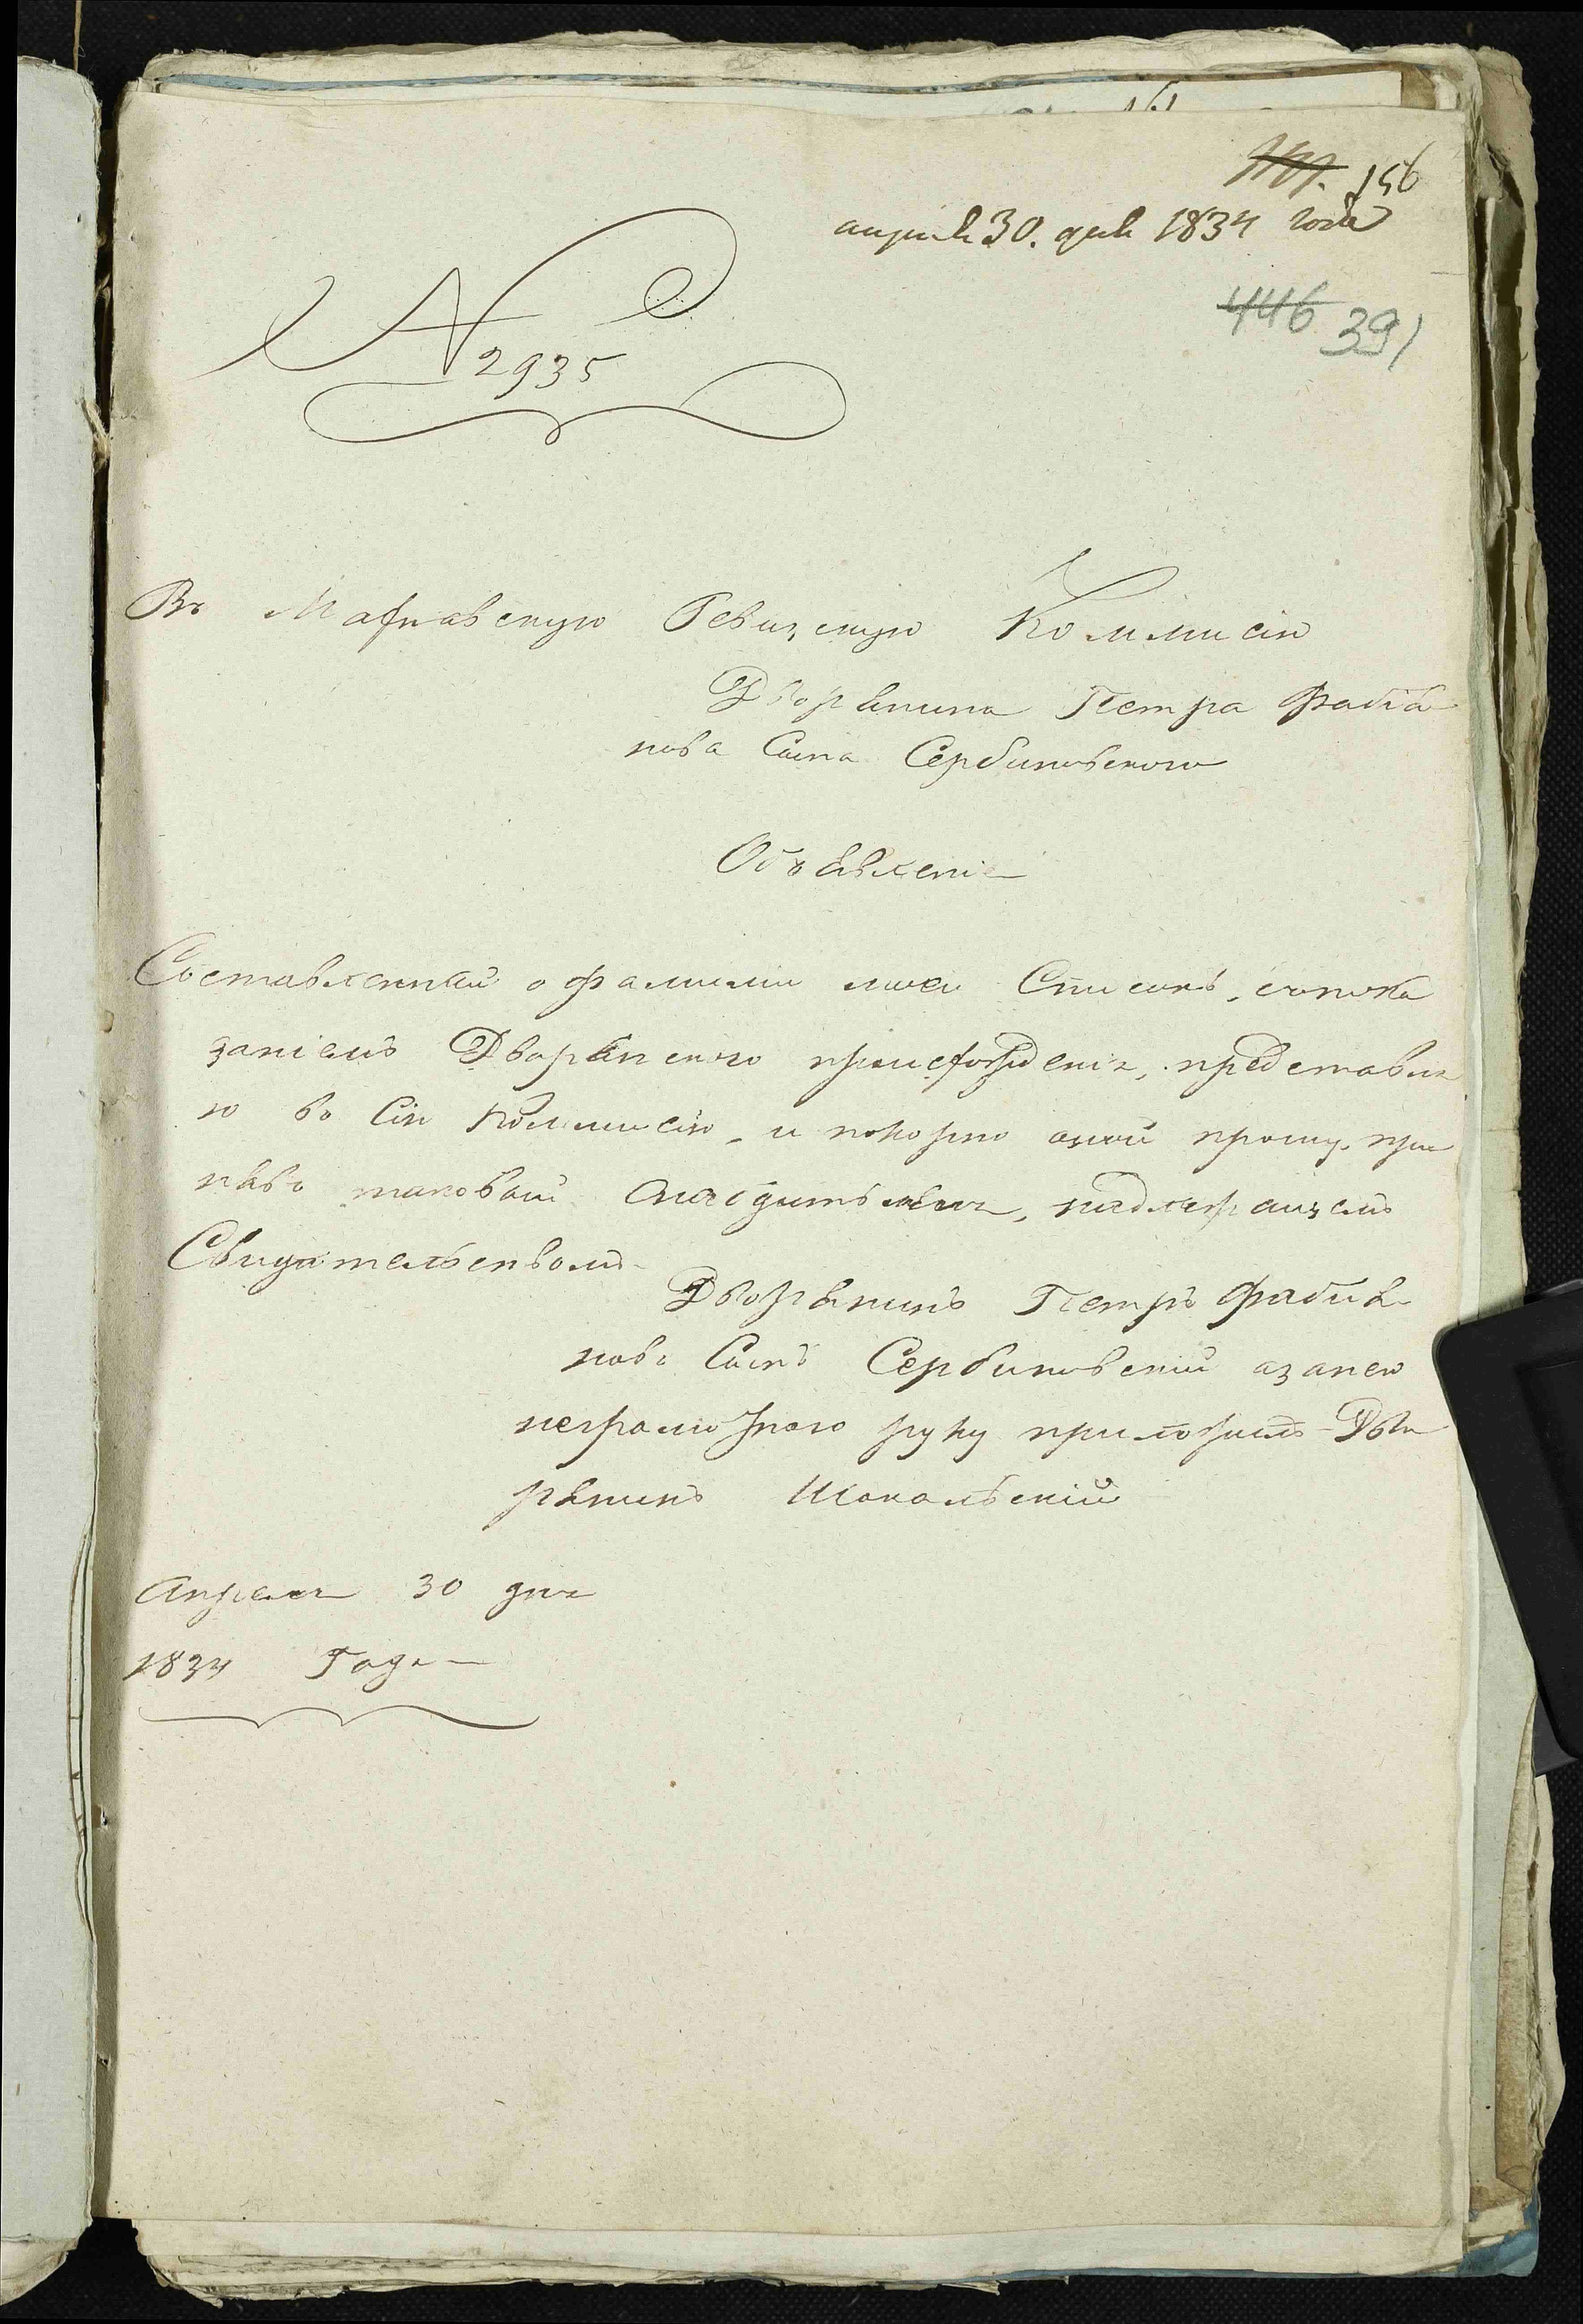 156
апреля 30. дня 1834 года
446 391
№ 2935
Въ Махнавскую Ревизскую Коммисію
Дворянина Петра Фабіа
нова Сына Сербиновского
Объявленіе
Составленный о фамиліи моей Списокъ, съпока
заніемъ Дворянского происхожденія, представля
ю во Сію Коммисію, и покорно оной прошу, при
нявъ таковый снабдить меня, надлежащемъ
Свидательствомъ
Дворянинъ Петръ Фабіа
новъ Сынъ Сербиновскій азанею
неграмотного руку приложилъ Дво
рянинъ Шокальскій
Апреля 30 дня
1834 Года